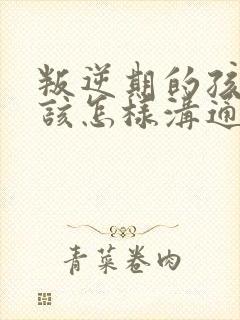 叛逆期的孩
該怎樣溝通
青菜卷肉